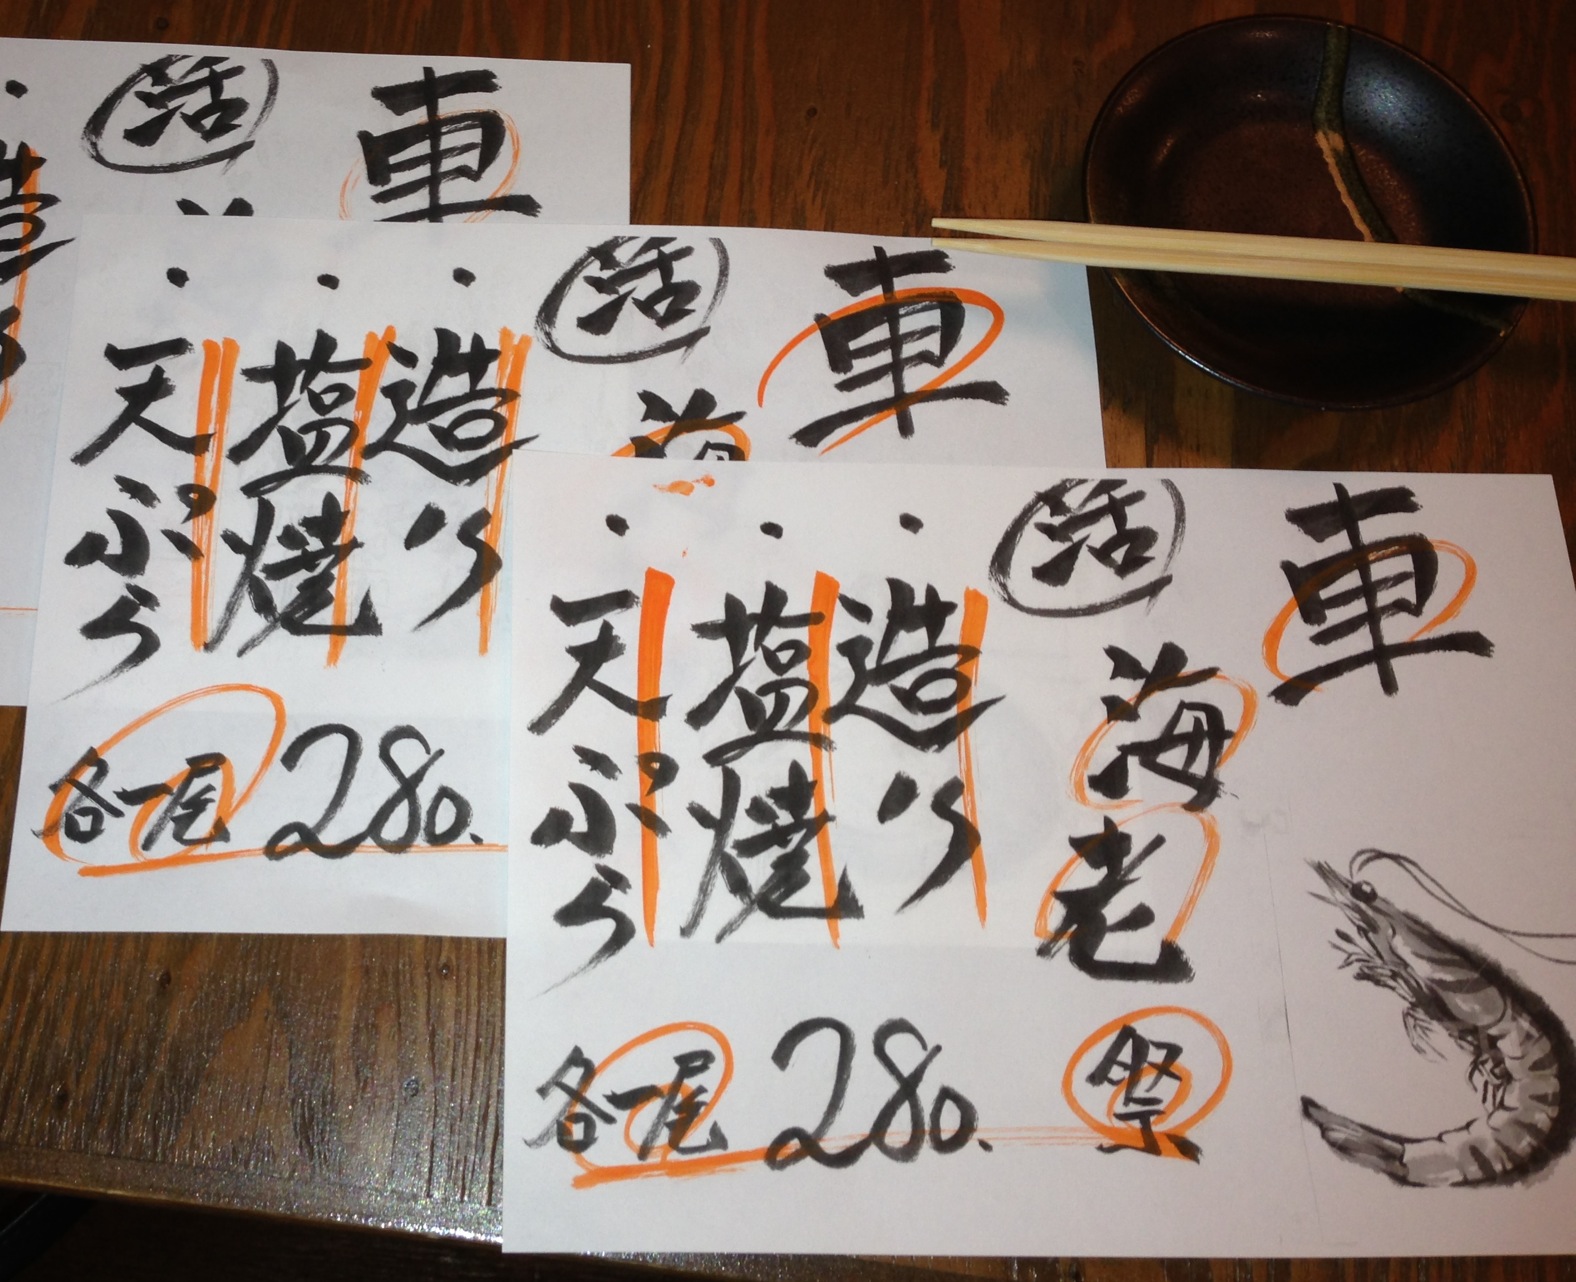 活
車海老
祭
・造り
・塩焼
・天ぷら
各一尾 280.
活
車
海
・造り
・塩焼
・天ぷら
各一尾 280.
活
車
造